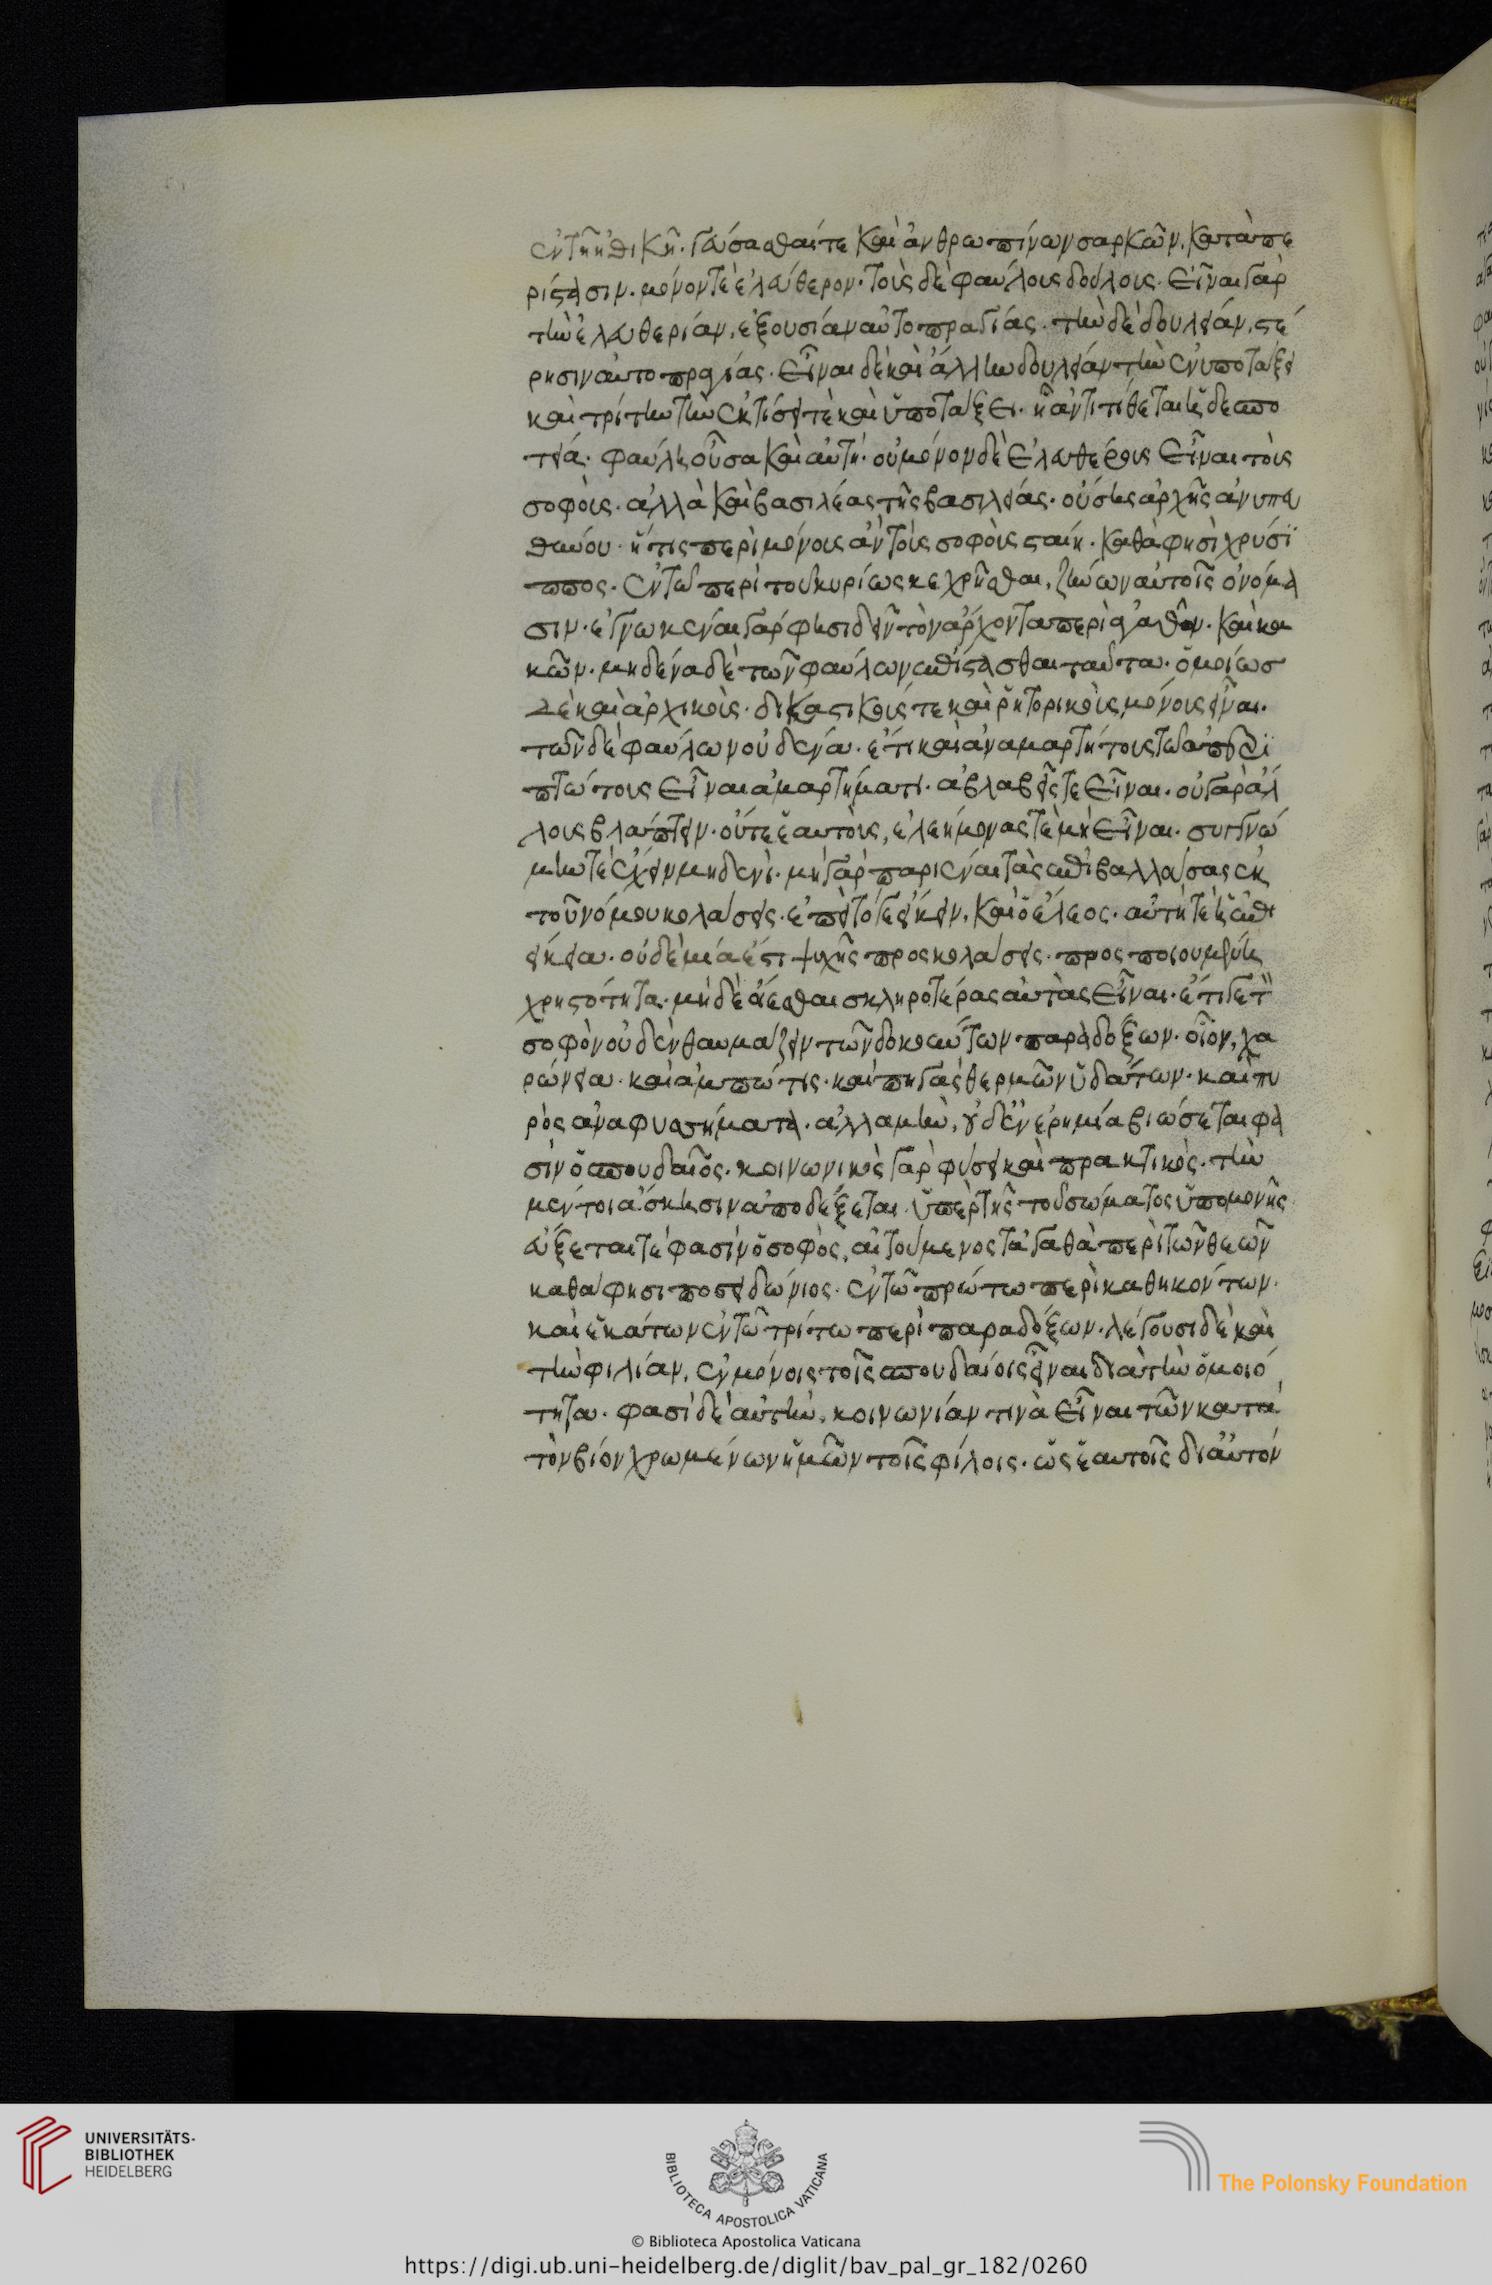 ἐν τῆ ἠθικῆ. γεύσασθαί τε καὶ ἀνθρωπίνων σαρκῶν. κατὰ πε
ρίστασιν. μόνον τὲ ἐλεύθερον. τοὺς δὲ φαύλους δούλους. εἶναι γὰρ
τὴν ἐλευθερίαν, ἐξουσίαν αὐτοπραγίας. τὴν δὲ δουλείαν, στέ
ρησιν αὐτοπραγίας. εἶναι δὲ καὶ ἄλλην δουλείαν τὴν ἐν ὑποτάξει
καὶ τρίτην τὴν ἐν κτίσει τὲ καὶ ὑποτάξει. ἧ ἀντιτίθεται ἡ δεσπο
τεία. φαύλη οὖσα καὶ αὐτή. οὐ μόνον δὲ ἐλευθέρους εἶναι τοὺς
σοφοὺς. ἀλλὰ καὶ βασιλέας τῆς βασιλείας. οὔσης ἀρχῆς ἀνυπευ
θύνου. ἥτις περὶ μόνους ἂν τοὺς σοφοὺς σταίη. καθὰ φησὶ χρύσι
ππος. ἐν τῶ περὶ τοῦ κυρίως κεχρῆσθαι, ζήνωνα τοῖς ὀνόμα
σιν. ἐγνωκέναι γάρ φησι δεῖν τὸν ἄρχοντα περὶ ἀγαθῶν. καὶ κα
κῶν. μηδένα δὲ τῶν φαύλων ἐπίστασθαι ταῦτα. ὁμοίωσ
δὲ καὶ ἀρχικοὺς. δικαστικούς τε καὶ ῥητορικοὺς μόνους εἶναι.
τῶν δὲ φαύλων οὐδένα. ἔτι καὶ ἀναμαρτήτους τῶ ἀπερι
πτώτους εἶναι ἁμαρτήματι. ἀβλαβεῖς τε εἶναι. οὐ γὰρ ἀλ
λους βλάπτειν. οὔτε ἑαυτοὺς, ἐλεήμονας τὲ μὴ εἶναι. συγγνώ
μην τὲ ἔχειν μηδενὶ. μὴ γὰρ παριέναι τὰς ἐπιβαλλούσας ἐκ
τοῦ νόμου κολάσεις. ἐπεὶ τόγε εἴκειν, καὶ ὁ ἔλεος. αὐτή τὲ ἡ ἐπι
είκεια. οὐδὲμία ἐστι ψυχῆς προς κολάσεις. προς ποιουμένης
χρηστότητα. μὴ δὲ οἴεσθαι σκληροτέρας αὐτὰς εἶναι. ἔτι γε τὸν
σοφὸν οὐδὲν θαυμάζειν τῶν δοκούντων παραδόξων. οἷον, χα
ρώνεια. καὶ ἀμπώτις. καὶ πηγὰς θερμῶν ὑδάτων. καὶ πυ
ρὸς ἀναφυσήματα. ἀλλα μὴν, οὐδ' ἐν ἐρημία βιώσεται φα
σὶν ὁ σπουδαῖος. κοινωνικὸς γὰρ φύσει καὶ πρακτικὸς. τὴν
μέντοι ἄσκησιν ἀποδέξεται. ὑπὲρ τῆς τοῦ σώματος ὑπομονῆς
εὔξεται τέ φασὶν ὁ σοφὸς, αἰτούμενος τἀγαθὰ περὶ τῶν θεῶν
καθά φησι ποσειδώνιος. ἐν τῶ πρώτω περὶ καθηκόντων.
καὶ ἑκάτων ἐν τῶ τρίτω περὶ παραδόξων. λέγουσι δὲ καὶ
τὴν φιλίαν, ἐν μόνοις τοῖς σπουδαίοις εἶναι διὰ τὴν ὁμοιό
τητα. φασὶ δὲ αὐτὴν, κοινωνίαν τινὰ εἶναι τῶν κατὰ
τὸν βίον χρωμένων ἡμῶν τοῖς φίλοις. ὡς ἑαυτοῖς δι αὐτόν
UNIVERSITÄTS-
BIBLIOTHEK
HEIDELBERG
BIBLIOTECA APOSTOLICA VATICANA
The Polonsky Foundation
© Biblioteca Apostolica Vaticana
https://digi.ub.uni-heidelberg.de/diglit/bav_pal_gr_182/0260